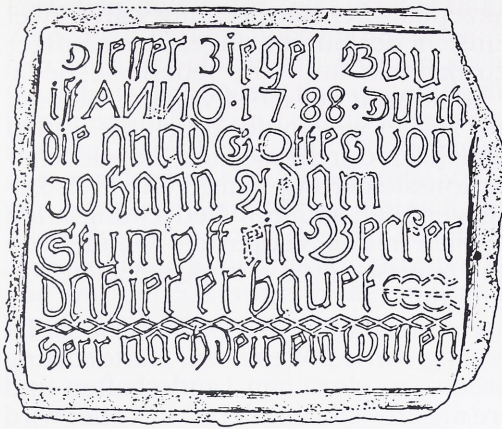 Diesser Ziegel Bau
ist ANNO·1788·Durch
die gnad Gottes von
Johann Adam
Stumpff ein Becker
Dahier erbauet
Herr nach deinem willen